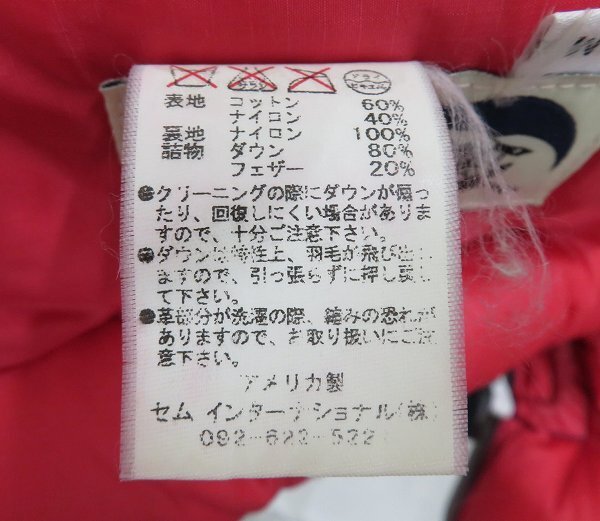 エンソ サラシ ドライ
セキユ系
表地 コットン 60%
ナイロン 40%
裏地 ナイロン 100%
詰物 ダウン 80%
フェザー 20%
●クリーニングの際にダウンが偏っ
たり、回復しにくい場合がありま
すので、十分ご注意下さい。
●ダウンは特性上、羽毛が飛び出し
ますので、引っ張らずに押し戻し
て下さい。
●革部分が洗濯の際、縮みの恐れが
ありますので、お取り扱いにご注
意下さい。
アメリカ製
セム インターナショナル(株)
092-622-522